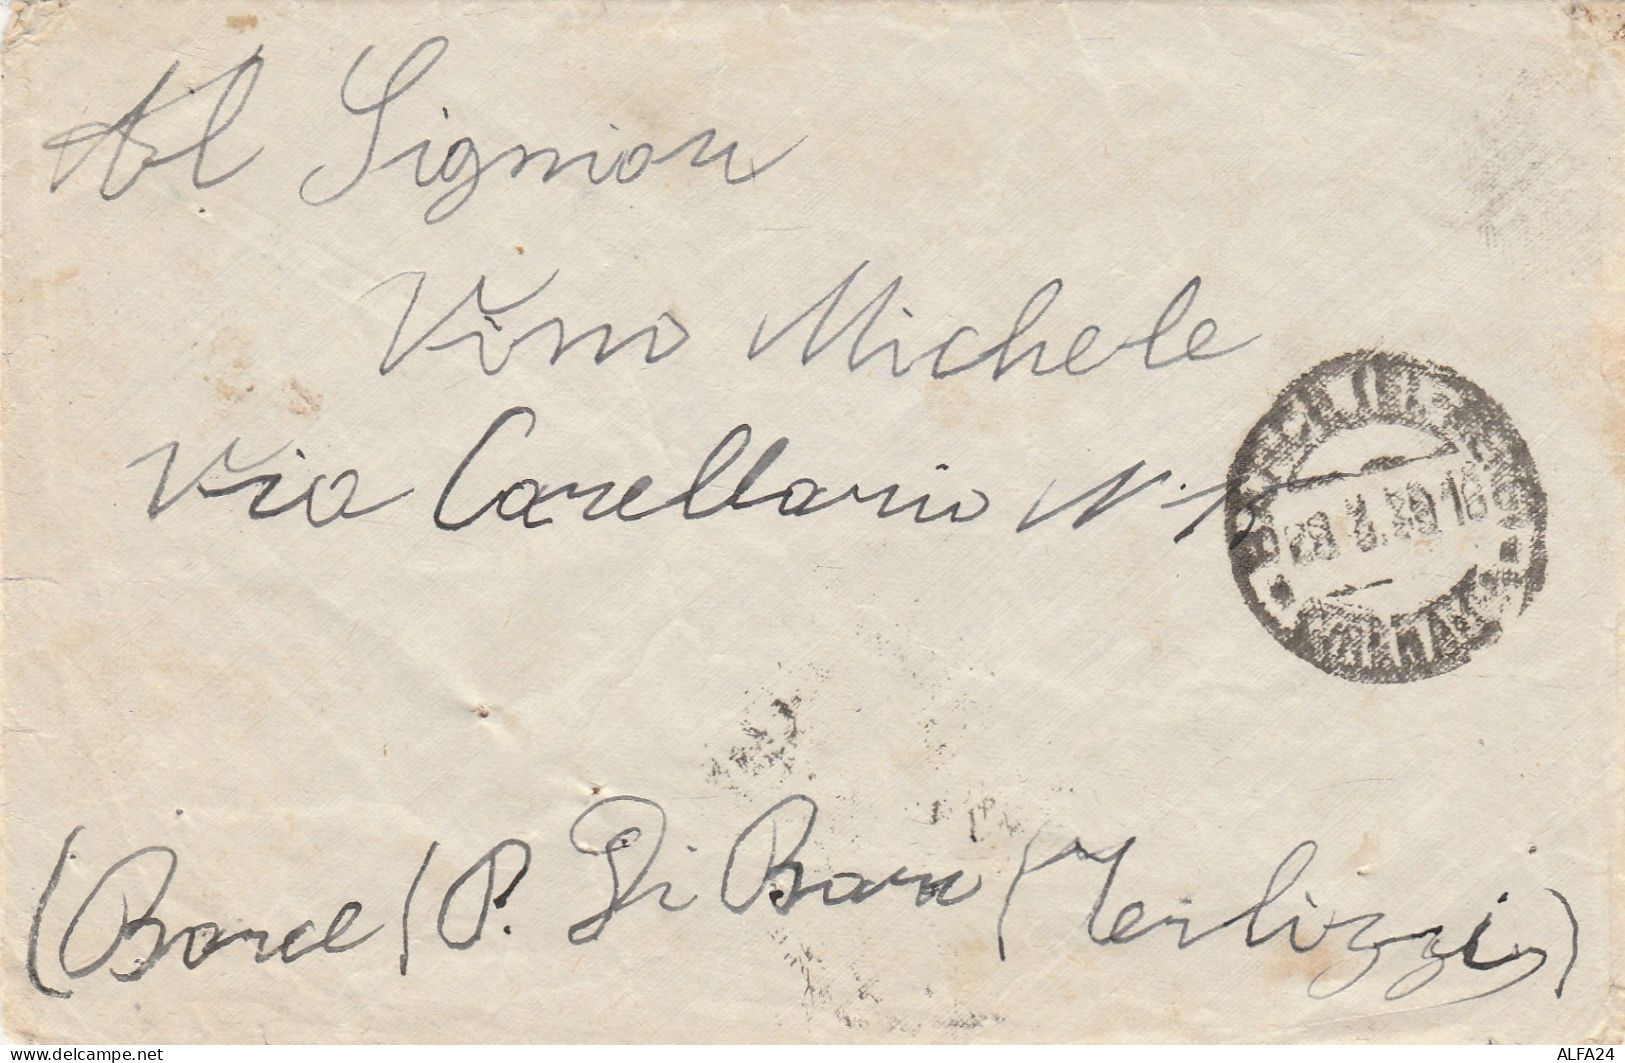 Al Signior
Vino Michele
Via Carellario N.
28 3.30 18
(Barce) P. Di Bari (Terlizzi)
https://www.delcampe.net
ALFA24